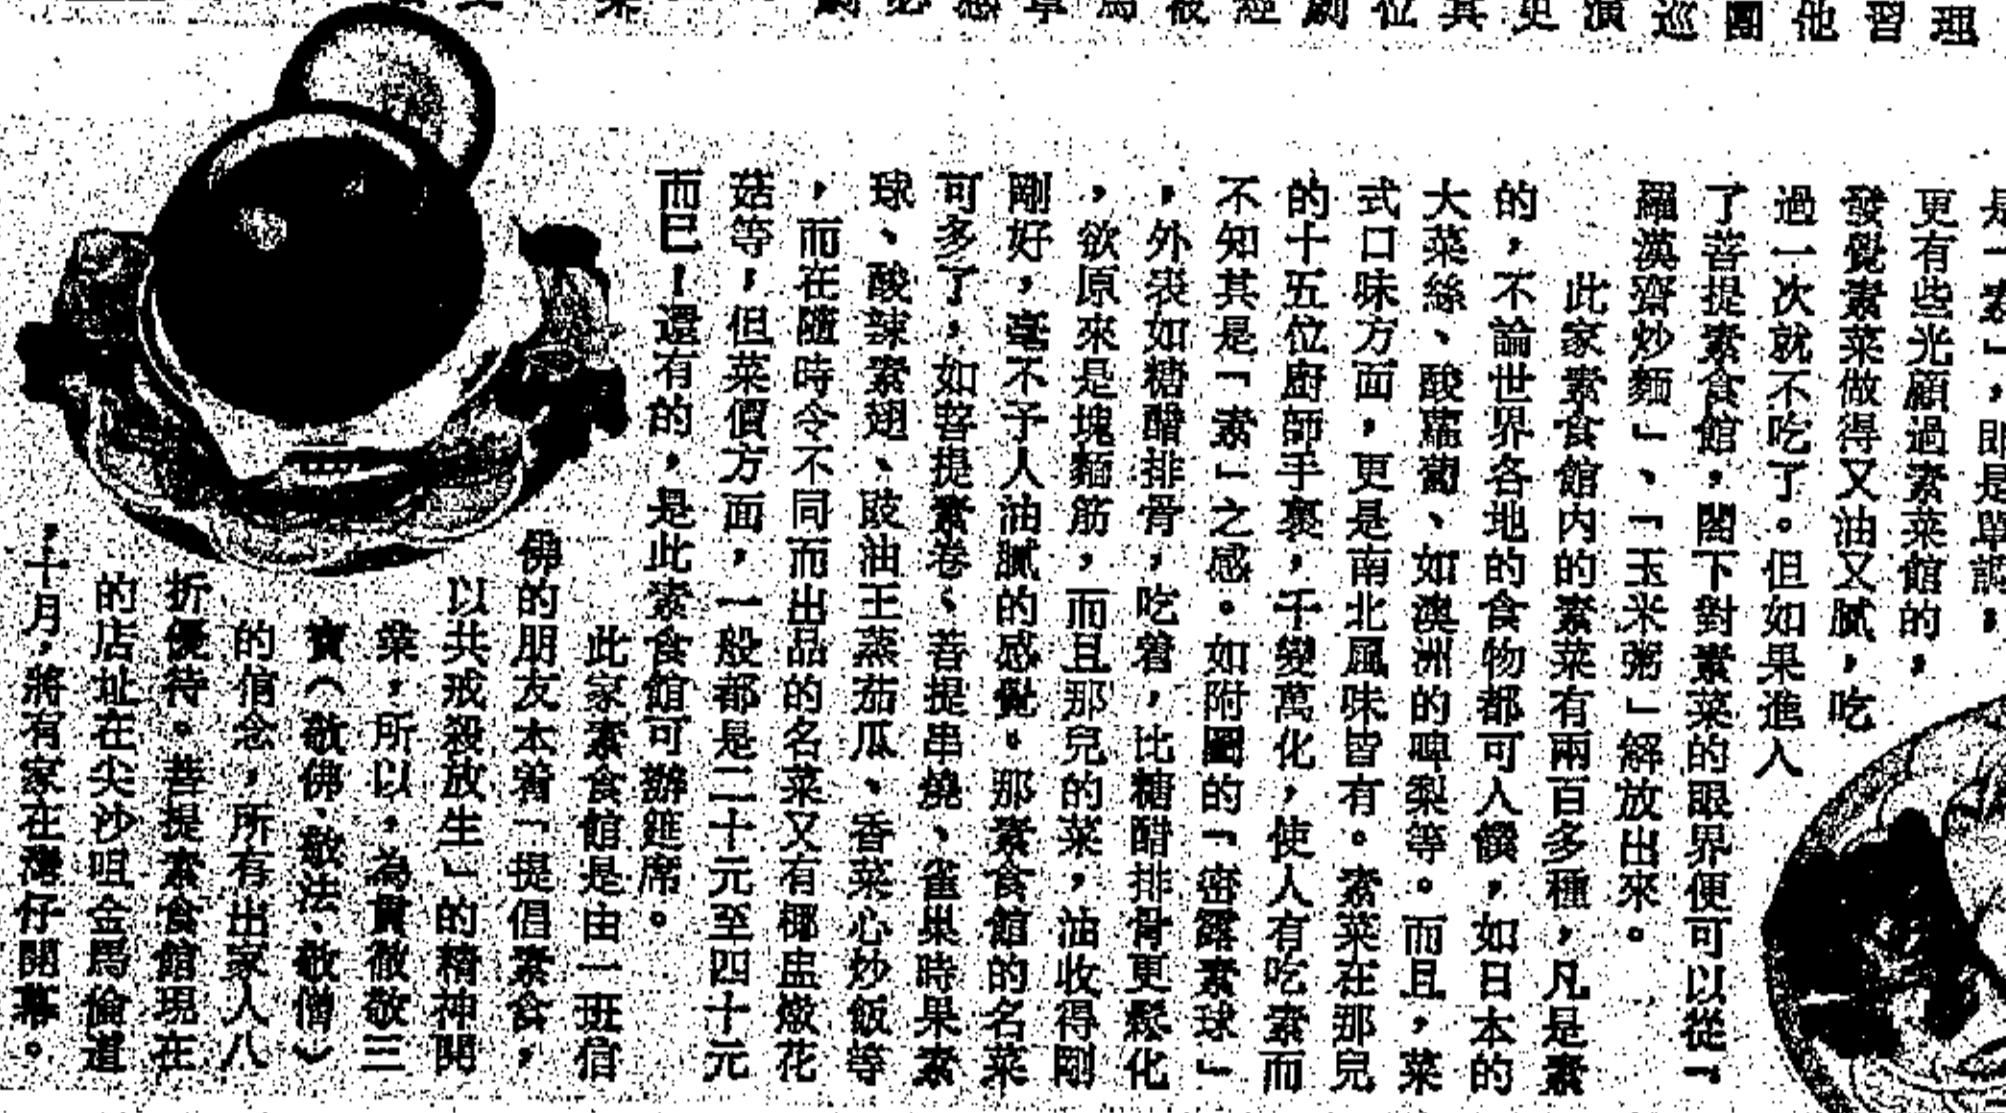 理
習
他
團
巡
演
更
其
位
劇
經
被
馬
章
感
必
劇
是一素」，即是單調，
更有些光顧過素菜館的，
發覺素菜做得又油又膩，吃
過一次就不吃了。但如果進入
了菩提素食館，閣下對素菜的眼界便可以從「
羅漢齋炒麵」、「玉米粥」解放出來。
此家素食館內的素菜有兩百多種，凡是素
的，不論世界各地的食物都可入饌，如日本的
大菜絲、酸蘿蔔、如澳洲的啤梨等。而且，菜
式口味方面，更是南北風味皆有。素菜在那兒
的十五位廚師手裏，千變萬化，使人有吃素而
不知其是「素」之感。如附圖的「密露素球」
，外表如糖醋排骨，吃着，比糖醋排骨更鬆化
，欲原來是塊麵筋，而且那兒的菜，油收得剛
剛好，毫不予人油膩的感覺。那素食館的名菜
可多了，如菩提素卷、菩提串燒、雀巢時果素
球、酸辣素翅、豉油王蒸茄瓜、香菜心炒飯等
，而在隨時令不同而出品的名菜又有椰盅燉花
菇等，但菜價方面，一般都是二十元至四十元
而已！還有的，是此素食館可辦筵席。
此家素食館是由一班信
佛的朋友本着「提倡素食，
以共戒殺放生」的精神開
業，所以，為貫徹敬三
寶（敬佛、敬法、敬僧）
的信念，所有出家人八
折優待。菩提素食館現在
的店址在尖沙咀金馬倫道
，十月，將有家在灣仔開幕。